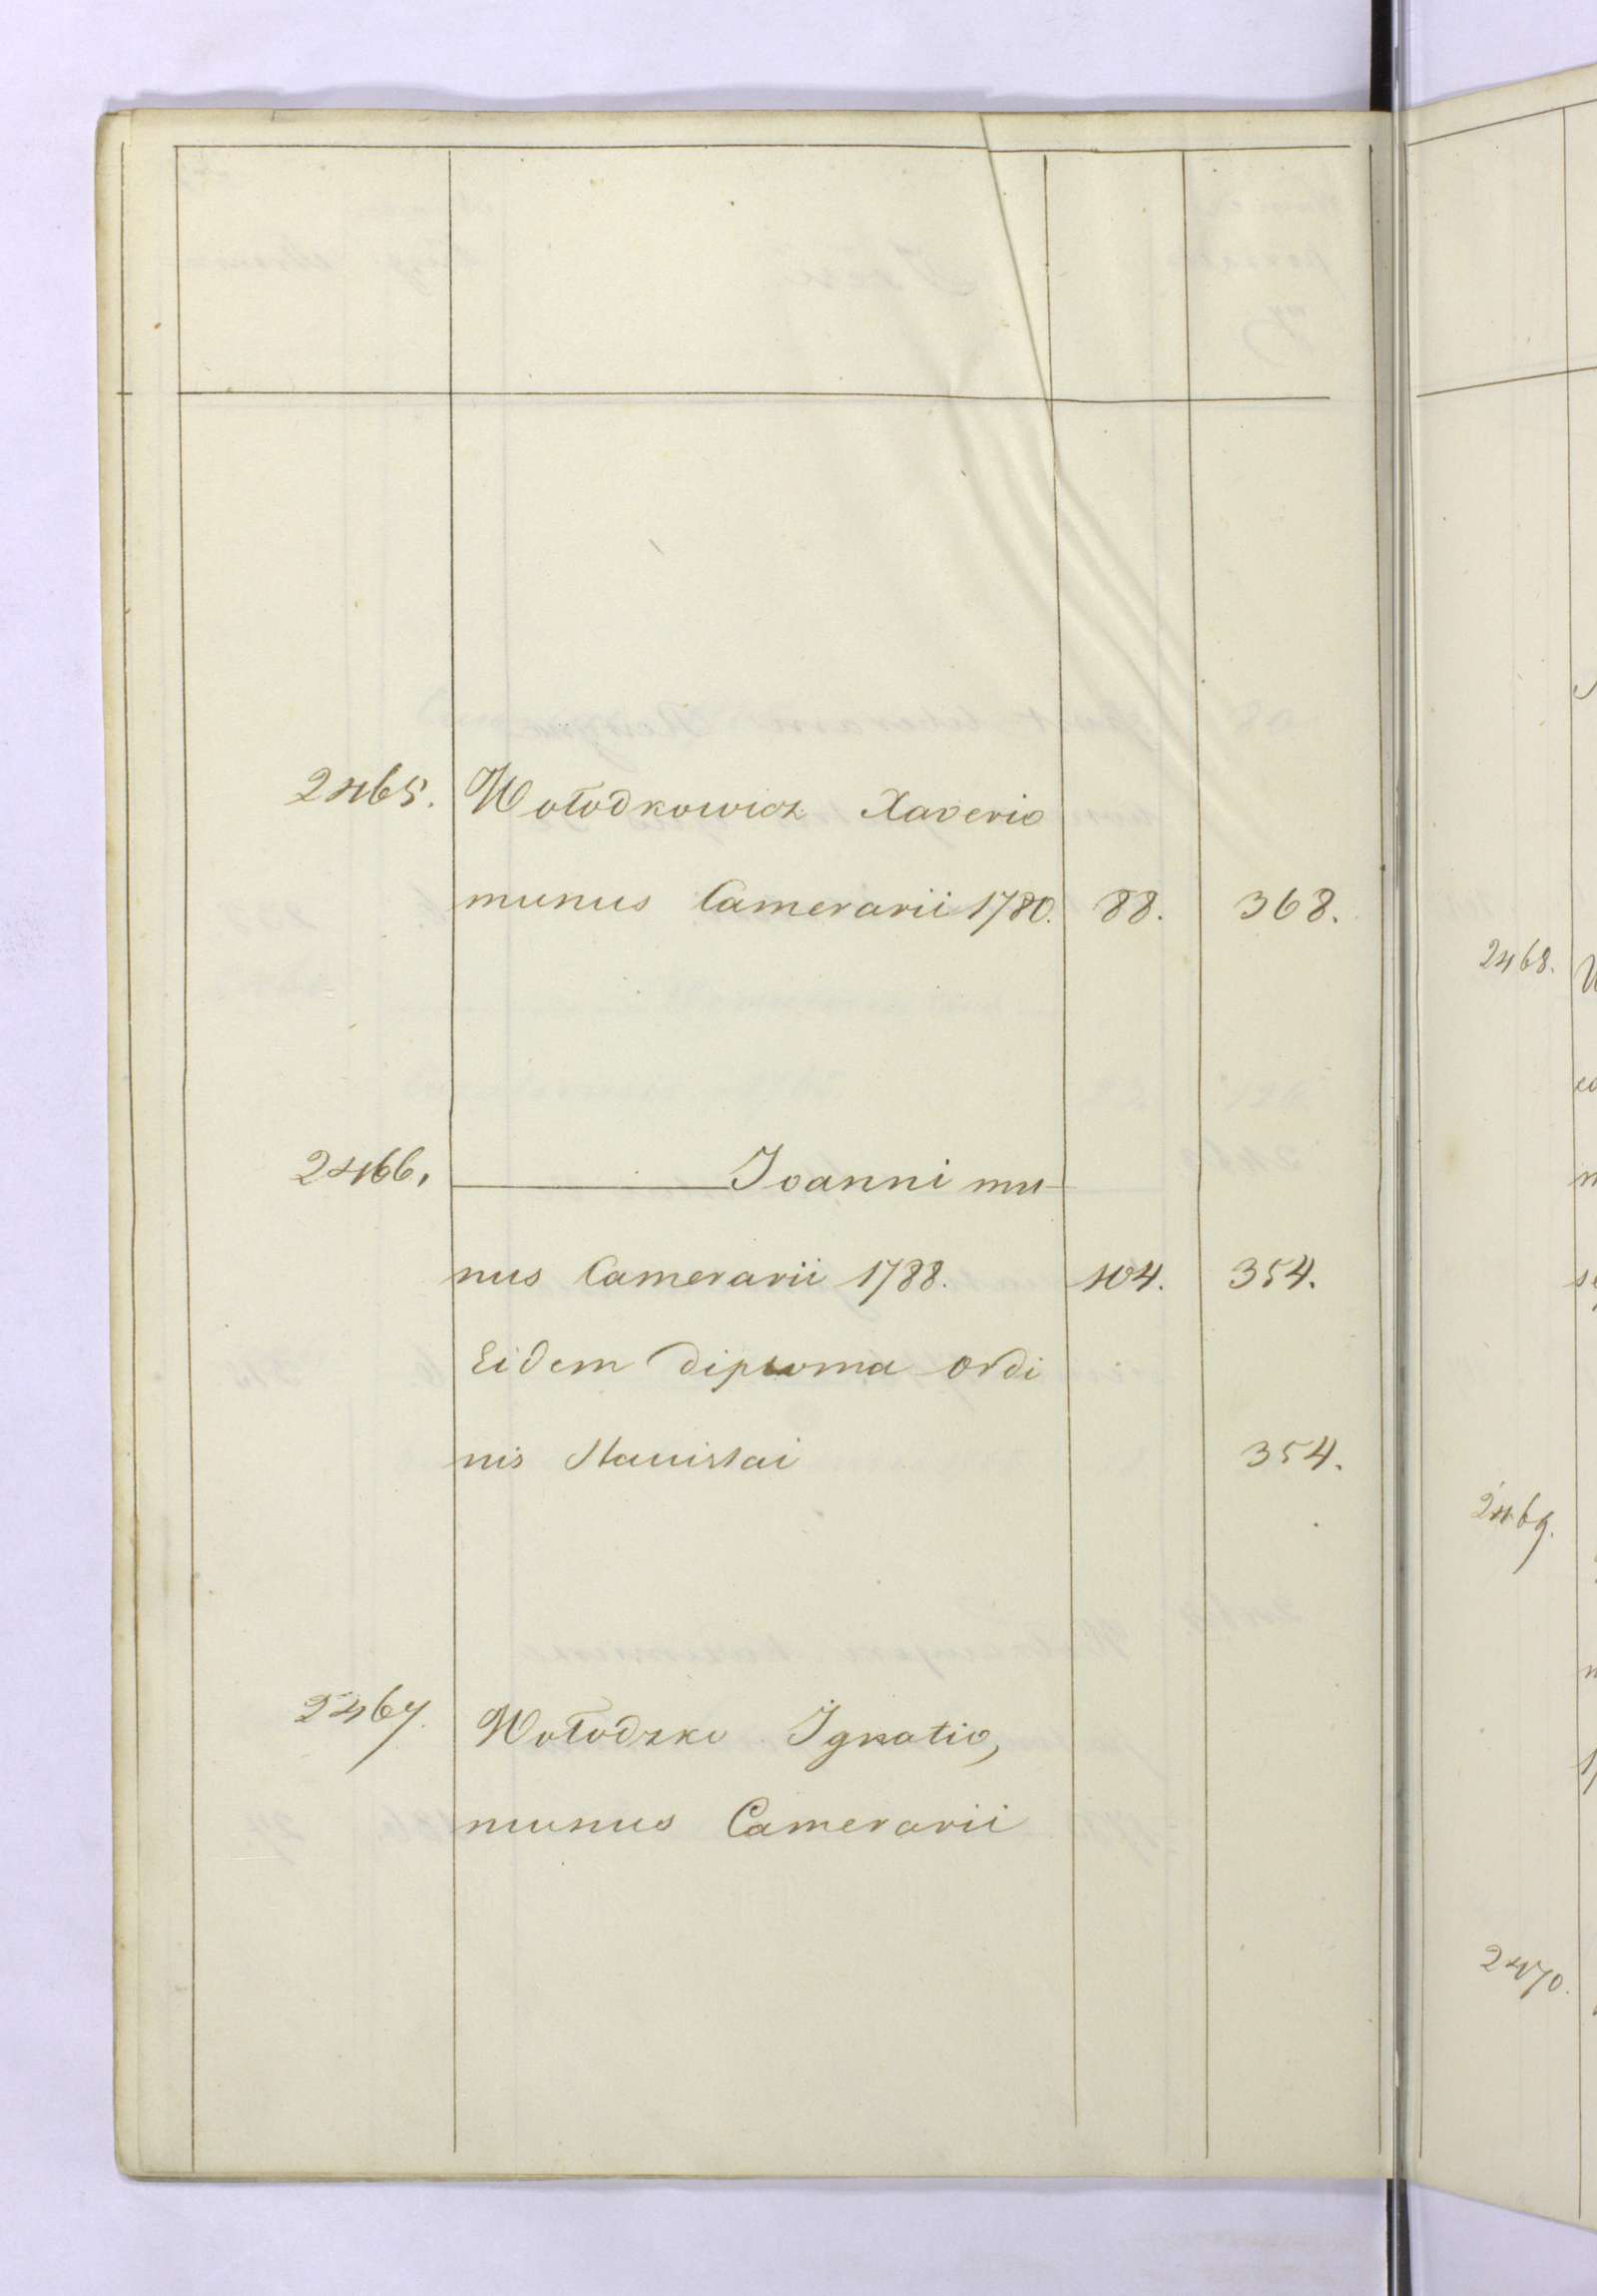 2465. Wołodkowicz Xaverio
munus Camerarii 1780. 88. 368.
2466. Joanni mu-
nus Camerarii 1788. 104. 354.
Eidem diploma ordi
nis Stanislai 354.
2467. Wołodzko Ignatio,
munus Camerarii
2468.
2469.
2470.